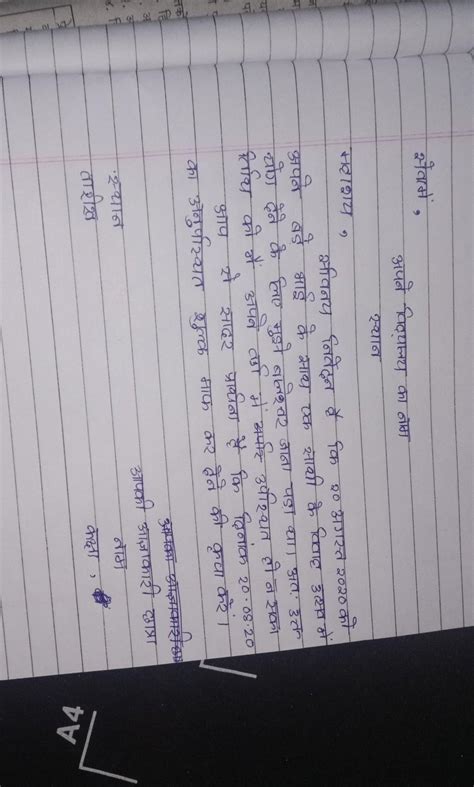 सेवामें,
अपने विद्यालय का नाम
स्थान
महाशय,
सविनय निवेदन है कि 20 अगस्त 2020 को
अपने बड़े भाई के साथ एक साथी के विवाह उत्सव में
योग देने के लिए मुझे जाना पड़ा था। अतः उक्त
तिथि को मैं अपने वर्ग में उपस्थित हो न सका
आप से सादर प्रार्थना है कि दिनांक 20.08.20
का अनुपस्थित शुल्क माफ कर देने की कृपा करें।
आपकी आज्ञाकारी छात्रा
स्थान नाम
तारीख कक्षा,
A4